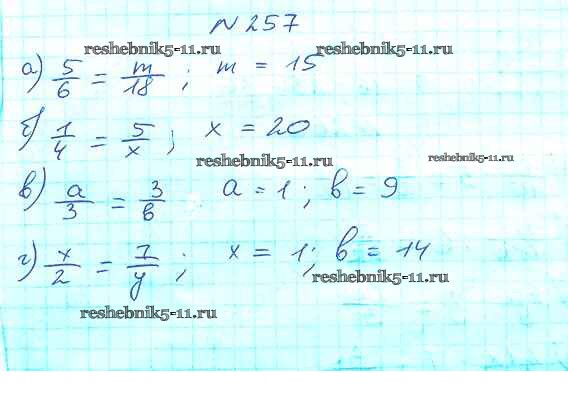 № 257
reshebnik5-11.ru reshebnik5-11.ru
а) 5/6 = m/18 ; m = 15
б) 1/4 = 5/x ; x = 20
reshebnik5-11.ru reshebnik5-11.ru
в) a/3 = 3/в a = 1 ; в = 9
г) x/2 = 7/y ; x = 1; в = 14
reshebnik5-11.ru
reshebnik5-11.ru